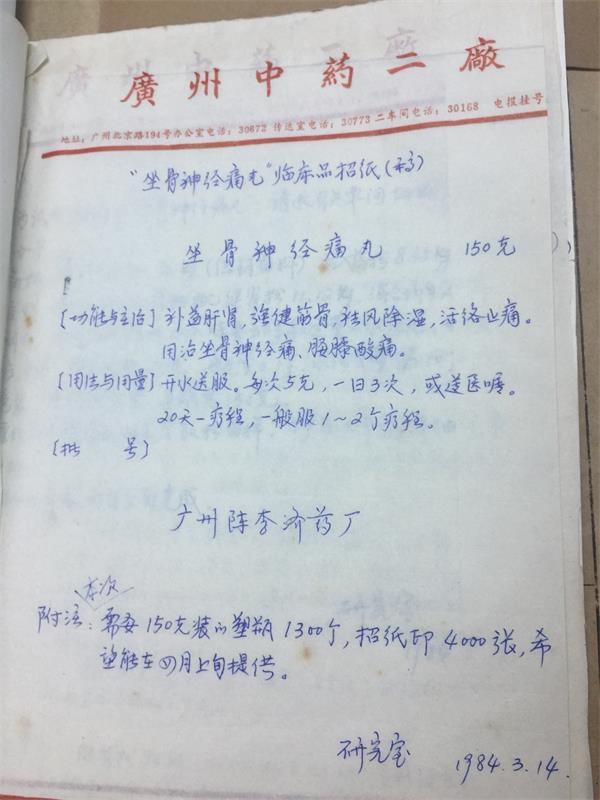 廣州中药二廠
地址:广州北京路194号办公室电话:30672 传达室电话:30773 二车间电话:30168 电报挂号
“坐骨神经痛丸”临床品招纸(稿)
坐骨神经痛丸 150克
[功能与主治] 补益肝肾,强健筋骨,祛风除湿,活络止痛。
用治坐骨神经痛、腰膝酸痛。
[用法与用量] 开水送服。每次5克,一日3次,或遵医嘱。
20天一疗程,一般服1~2个疗程。
[批 号]
广州陈李济药厂
本次
附注:需要150克装的塑瓶1300个,招纸印4000张,希
望能在四月上旬提供。
研究室 1984.3.14.